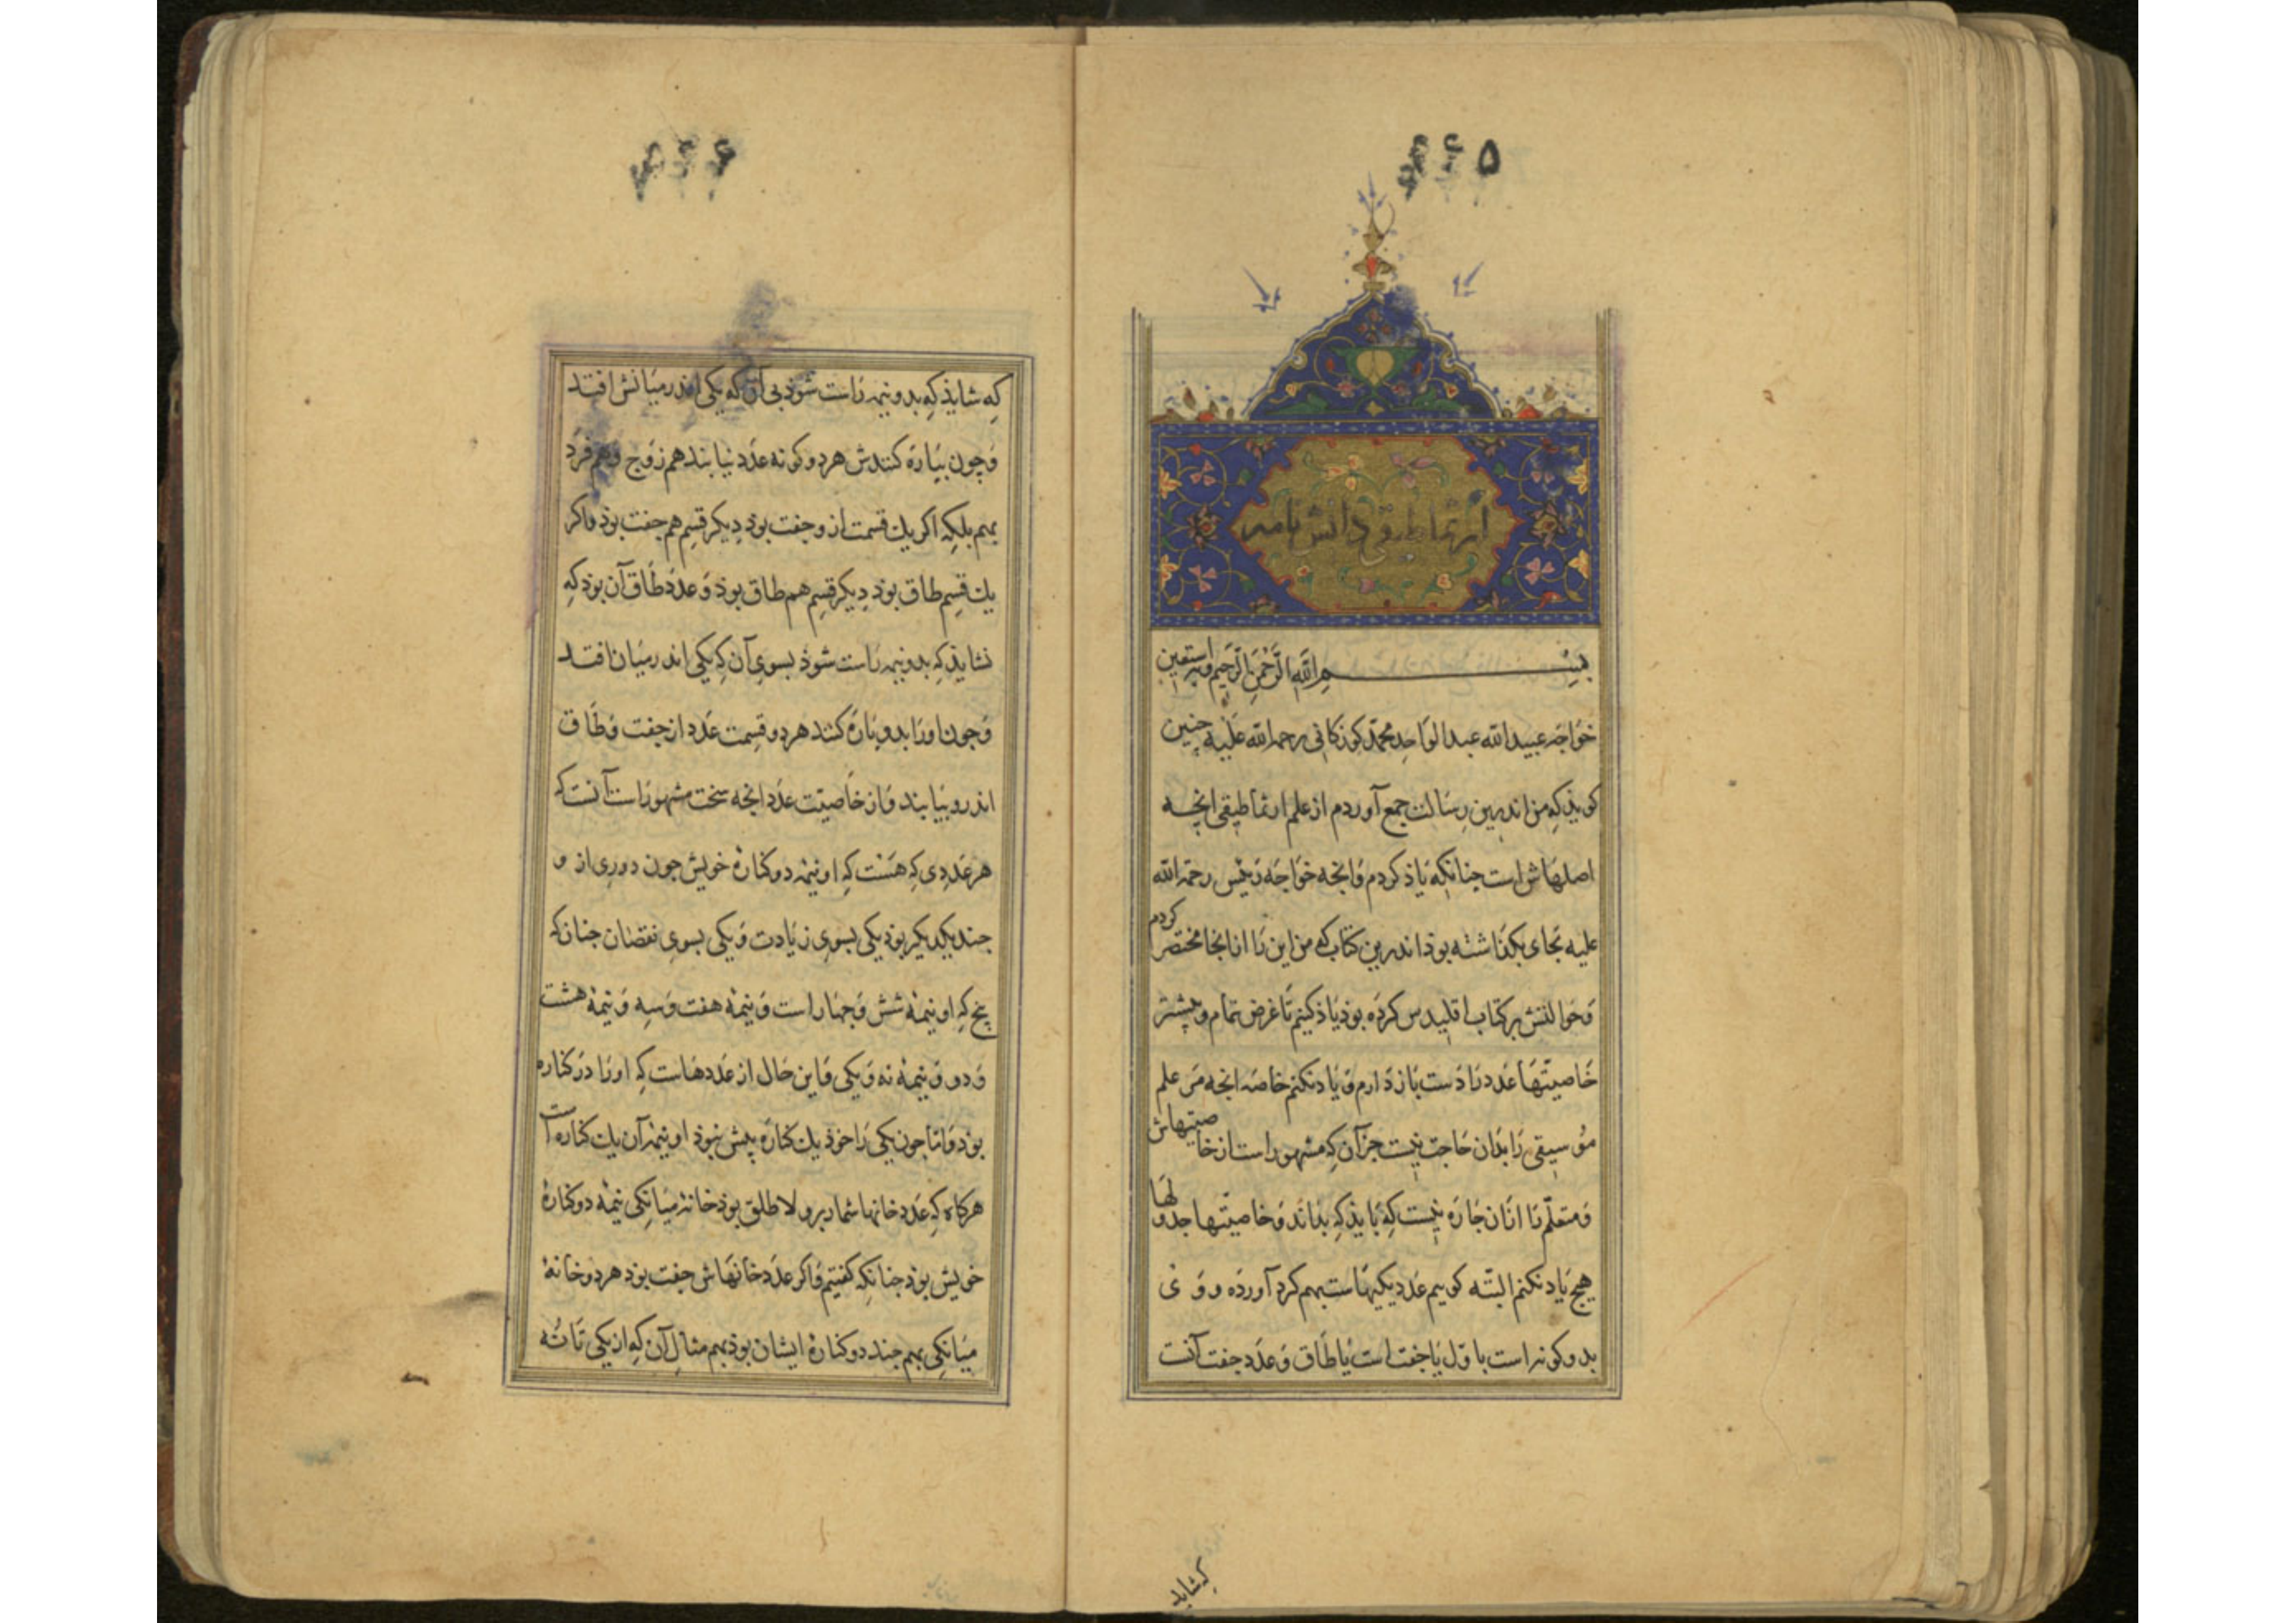 ۴۴۵
ارثماطیقی دانش نامه
بسم الله الرحمن الرحیم وبه استعین
خواجه عبیدالله عبدالواحد محمد کوزکانی رحمة الله علیه چنین
کویذ که من اندرین رسالت جمع آوردم از علم ارثماطیقی انچه
اصلهاش است چنانکه یاذ کردم وانچه خواجه رئیس رحمة الله
علیه بجای بکذاشته بوذ اندرین کتاب که من این را ازانجا مختصر کردم
وحوالتش بر کتاب اقلیدس کرده بوذ یاذ کنیم تا غرض تمام وبیشتر
خاصیتها عدد را دست باز دارم و یاد نکنم خاصه انچه مر علم
موسیقی را بذان حاجت نیست جز آن که مشهور است از خاصیتهاش
ومتعلم را ازان چاره نیست که بایذ که بداند وخاصیتها جدولها
هیچ یاد نکنم البته کوییم عدد یکیهاست بهم کرد آورده و وی
بدو کونه است باول یا جفت است یا طاق وعدد جفت آنست
که شاید
۴۴۶
که شایذ که بدونیمه راست شوذ بی آن که یکی اندر میانش افتد
وچون بپاره کنندش هردو کونه عدد نیابند هم زوج وهم فرد
بهم بلکه اکر یك قسمت ازو جفت بوذ دیکر قسم هم جفت بوذ واکر
یك قسم طاق بوذ دیکر قسم هم طاق بوذ وعدد طاق آن بوذ که
نشایذ که بدونیمه راست شوذ بسوی آن که یکی اندر میان افتد
وچون اورا بدو پاره کنند هردو قسمت عدد از جفت وطاق
اندرو بیابند واز خاصیت عدد انچه سخت مشهور است آنست که
هر عددی که هست که او نیمه دو کناره خویش چون دوری ازو
چند یکدیکر بوذ یکی بسوی زیادت ویکی بسوی نقصان چنان که
پنج که او نیمهٔ شش وچهار است ونیمهٔ هفت وسه ونیمهٔ هشت
ودو ونیمهٔ نه ویکی واین حال از عددهاست که اورا دو کناره
بوذ واما چون یکی را خوذ یك کناره بیش نبوذ او نیمهٔ آن یك کناره است
هرکاه که عدد خانها شمار برولا طاق بوذ خانهٔ میانکی نیمه دو کنارهٔ
خویش بوذ چنانکه کفتیم واکر عدد خانهاش جفت بوذ هردو خانهٔ
میانکی بهم چند دو کنارهٔ ایشان بوذ بهم مثال آن که از یکی تا نه